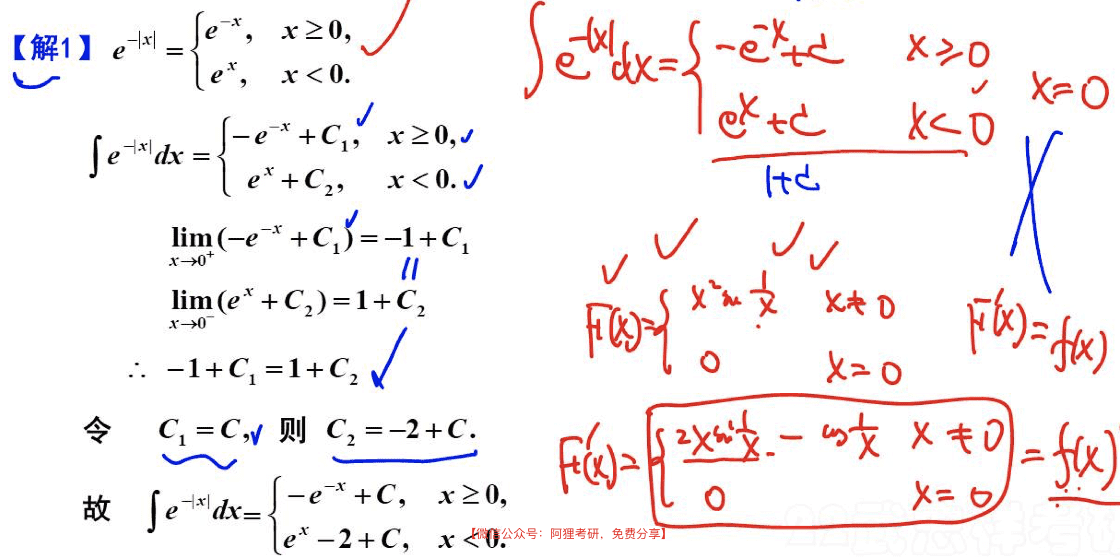 【解1】 e^{-|x|} = { e^{-x}, x ≥ 0, e^{x}, x < 0.
∫ e^{-|x|} dx = { -e^{-x} + C₁, x ≥ 0, e^{x} + C₂, x < 0.
lim_{x→0⁺} (-e^{-x} + C₁) = -1 + C₁
lim_{x→0⁻} (e^{x} + C₂) = 1 + C₂
∴ -1 + C₁ = 1 + C₂
令 C₁ = C, 则 C₂ = -2 + C.
故 ∫ e^{-|x|} dx = { -e^{-x} + C, x ≥ 0, e^{x} - 2 + C, x < 0.
∫ e^{-|x|} dx = { -e^{-x} + C x ≥ 0 e^{x} + C x < 0
x = 0
1 + C
F(x) = { x² sin 1/x x ≠ 0 0 x = 0
F'(x) = f(x)
F'(x) = { 2x sin 1/x - cos 1/x x ≠ 0 0 x = 0 = f(x)
【微信公众号：阿狸考研，免费分享】